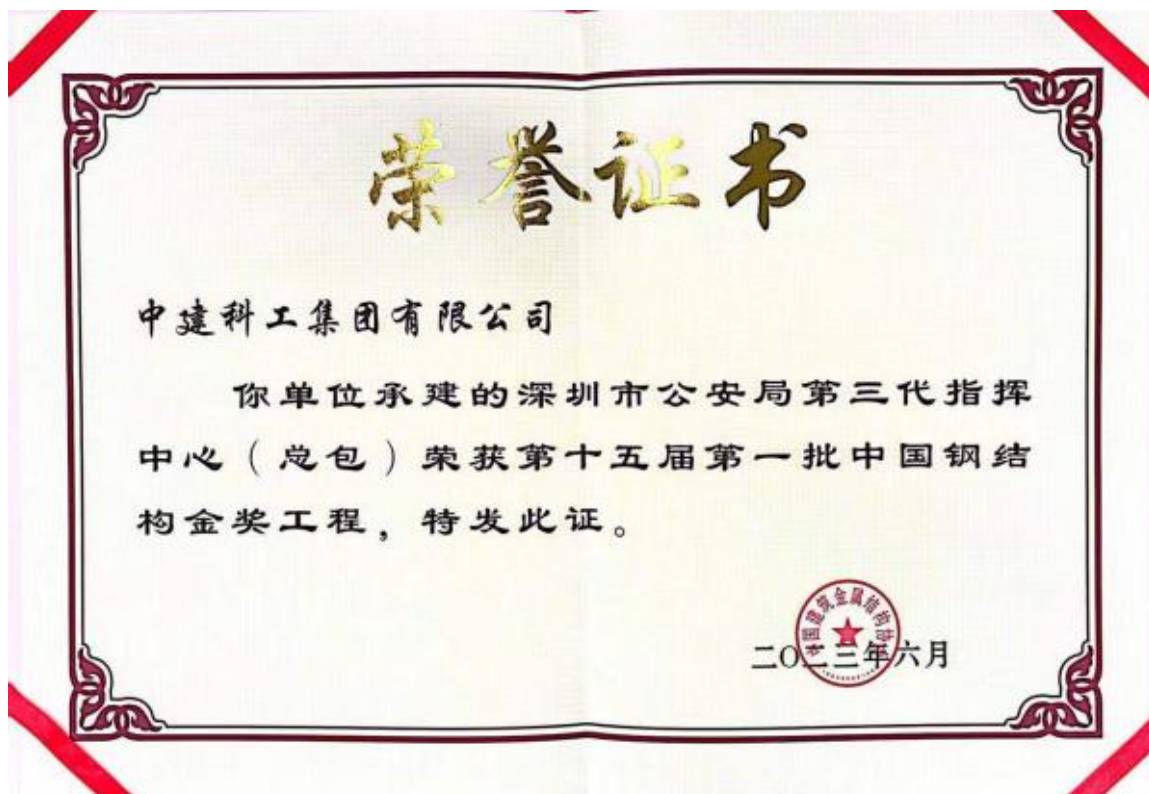 荣誉证书
中建科工集团有限公司
你单位承建的深圳市公安局第三代指挥
中心（总包）荣获第十五届第一批中国钢结
构金奖工程，特发此证。
中国建筑金属结构协
二〇二三年六月